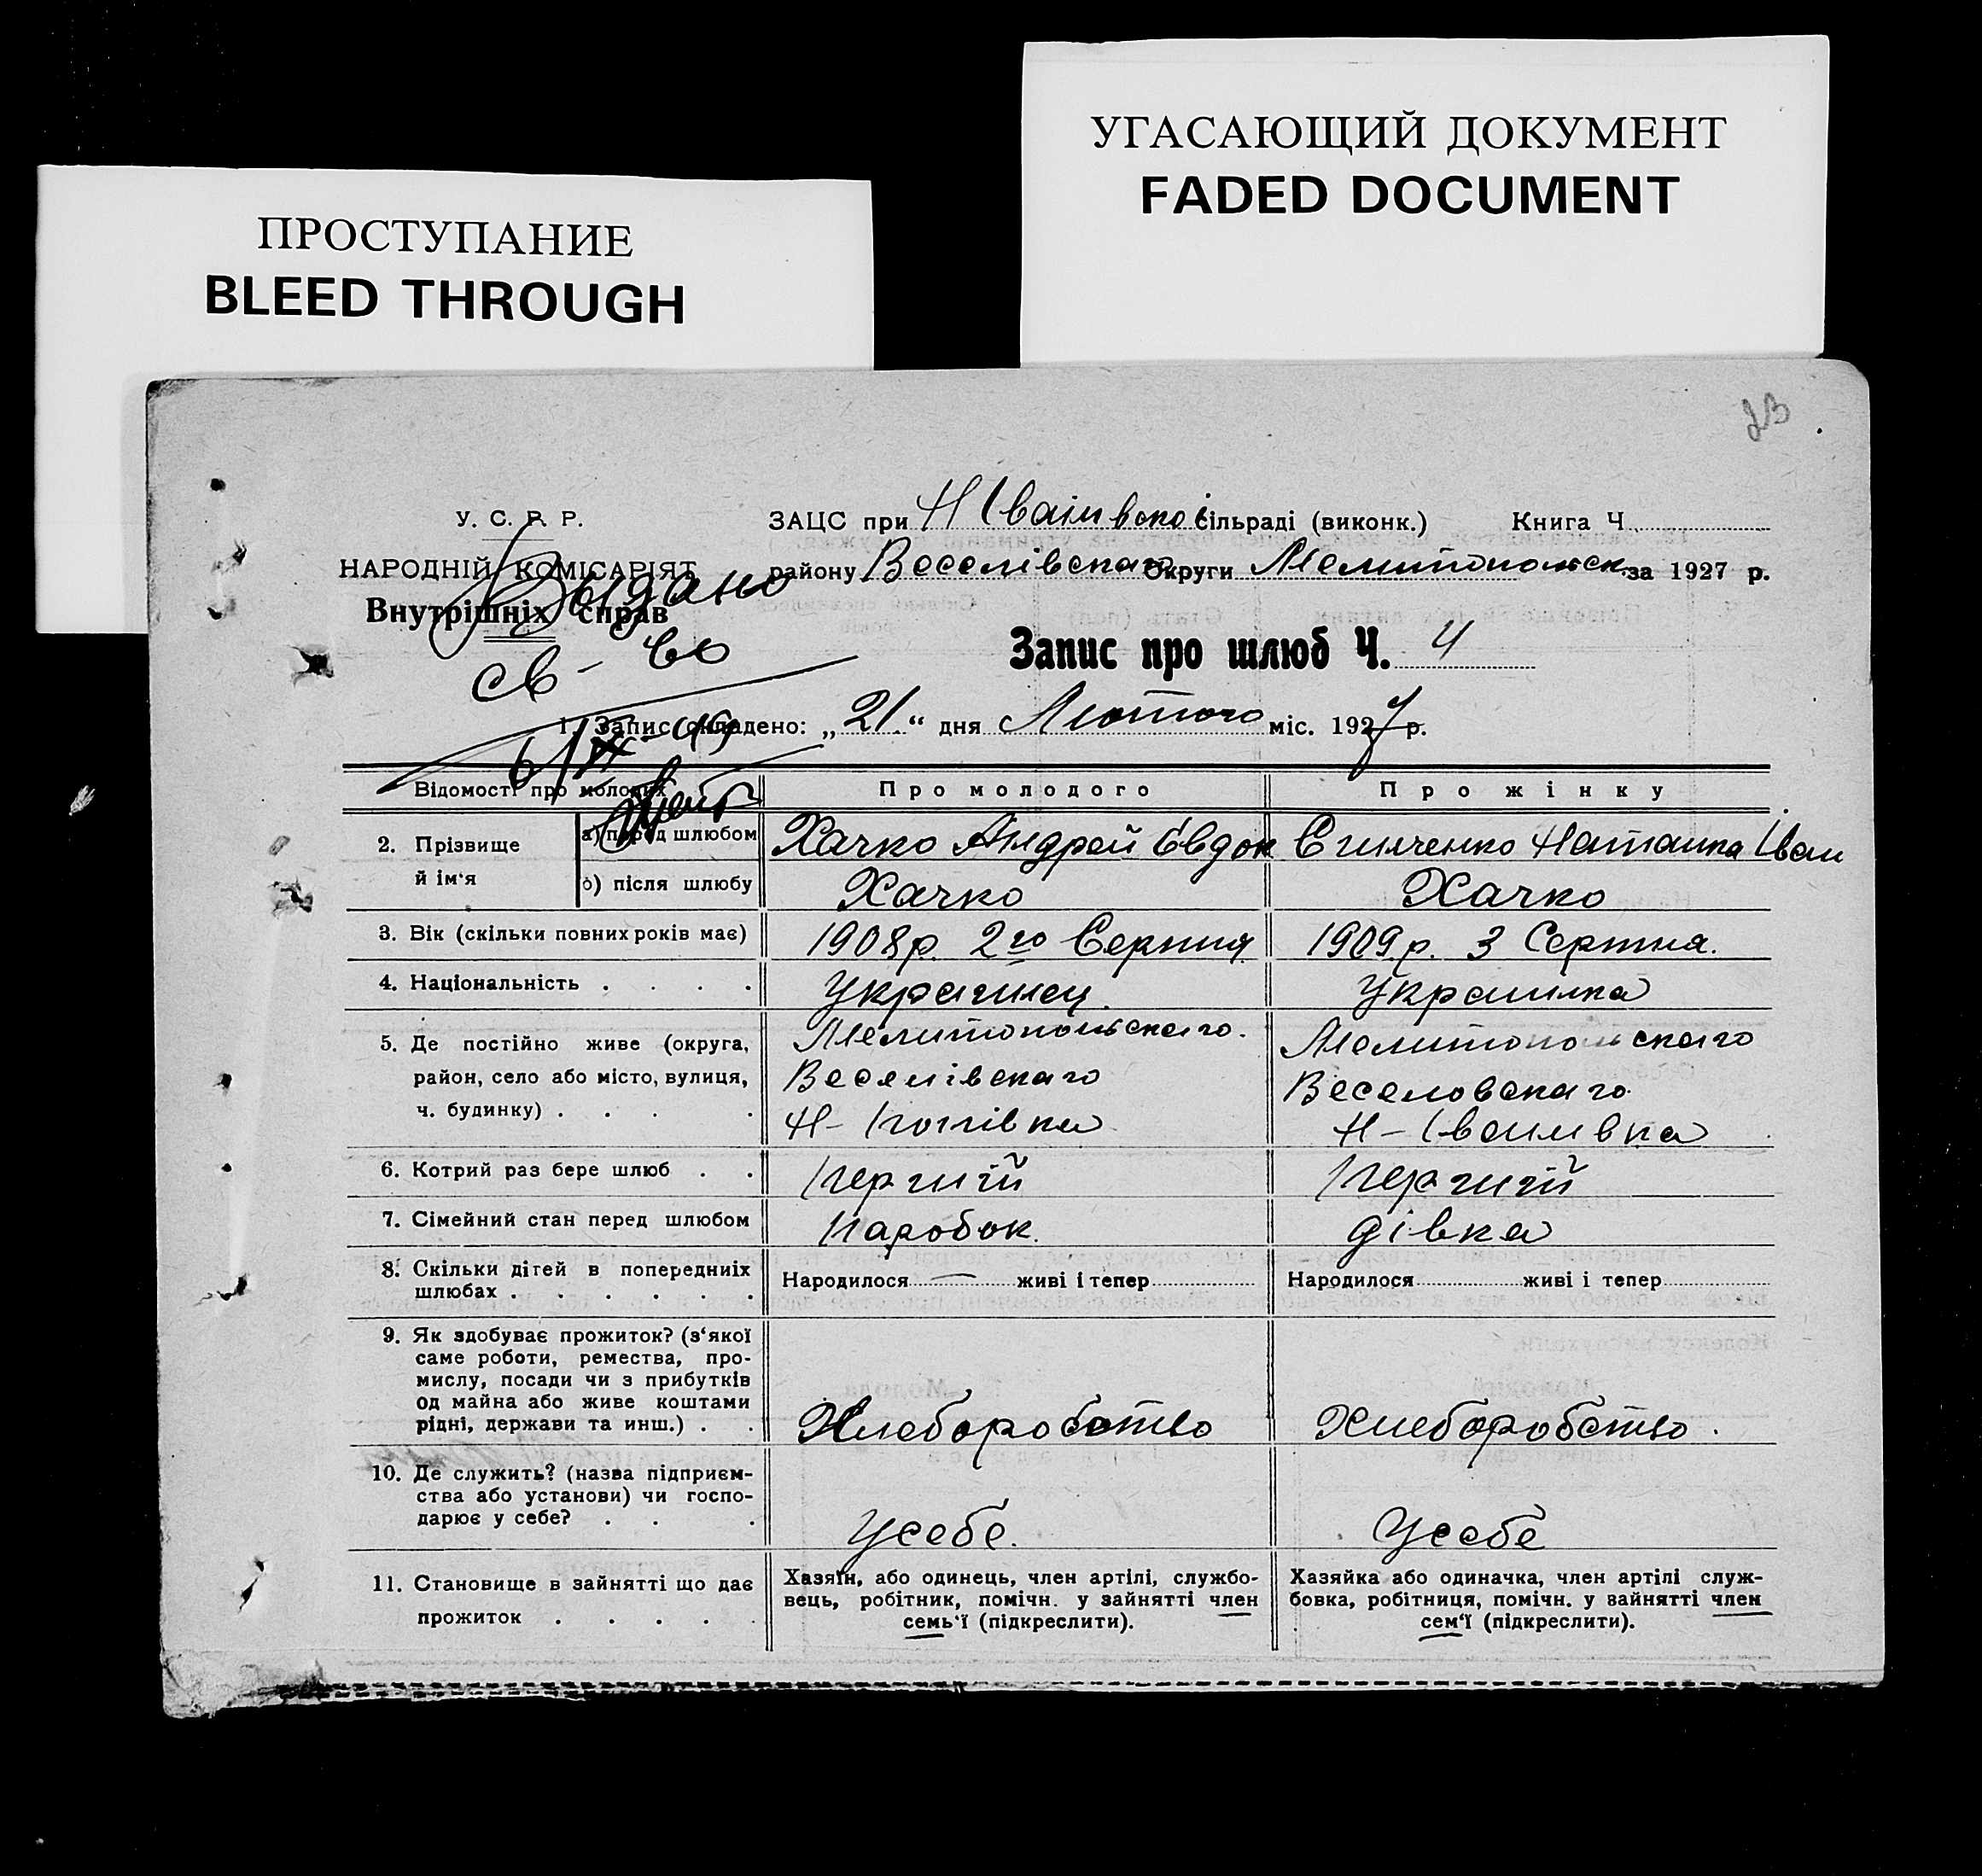 УГАСАЮЩИЙ ДОКУМЕНТ
FADED DOCUMENT
ПРОСТУПАНИЕ
BLEED THROUGH
23
У. С. Р. Р.
НАРОДНІЙ КОМІСАРІЯТ
Внутрішніх справ
Выдано
св-во
ЗАЦС при Н Іваінвскоі сільраді (виконк.) Книга Ч
району Веселівскаго Округи Мелитопольск за 1927 р.
Запис про шлюб Ч. 4
1. Запис складено: „21." дня Лютого міс. 1927 р.
Відомості про молодих
Про молодого
Про жінку
2. Прізвище й ім'я
а) перед шлюбом
Хачко Андрей Євдок
Наталка Іван
б) після шлюбу
Хачко
Хачко
3. Вік (скільки повних років має)
1908р. 2го Серпня
1909.р. 3 Серпня.
4. Національність . . . .
Украинец.
Украинка
5. Де постійно живе (округа,
район, село або місто, вулиця,
ч. будинку) . . . .
Мелитопольскаго.
Веселівскаго
Н-
Мелитопольскаго
Веселовскаго
Н-Іванивка
6. Котрий раз бере шлюб . .
Перший
Перший
7. Сімейний стан перед шлюбом
Паробок.
дівка
8. Скільки дітей в попередніх
шлюбах . . . . . .
Народилося — живі і тепер
Народилося живі і тепер
9. Як здобуває прожиток? (з'якої
саме роботи, ремества, про-
мислу, посади чи з прибутків
од майна або живе коштами
рідні, держави та инш.) . .
Хлеборобство
Хлеборобство.
10. Де служить? (назва підприєм-
ства або установи) чи госпо-
дарює у себе? . . .
Усебе.
Усебе
11. Становище в зайнятті що дає
прожиток . . . . .
Хазяїн, або одинець, член артілі, службо-
вець, робітник, помічн. у зайнятті член
семь'ї (підкреслити).
Хазяйка або одиначка, член артілі служ-
бовка, робітниця, помічн. у зайнятті член
сем'ї (підкреслити).